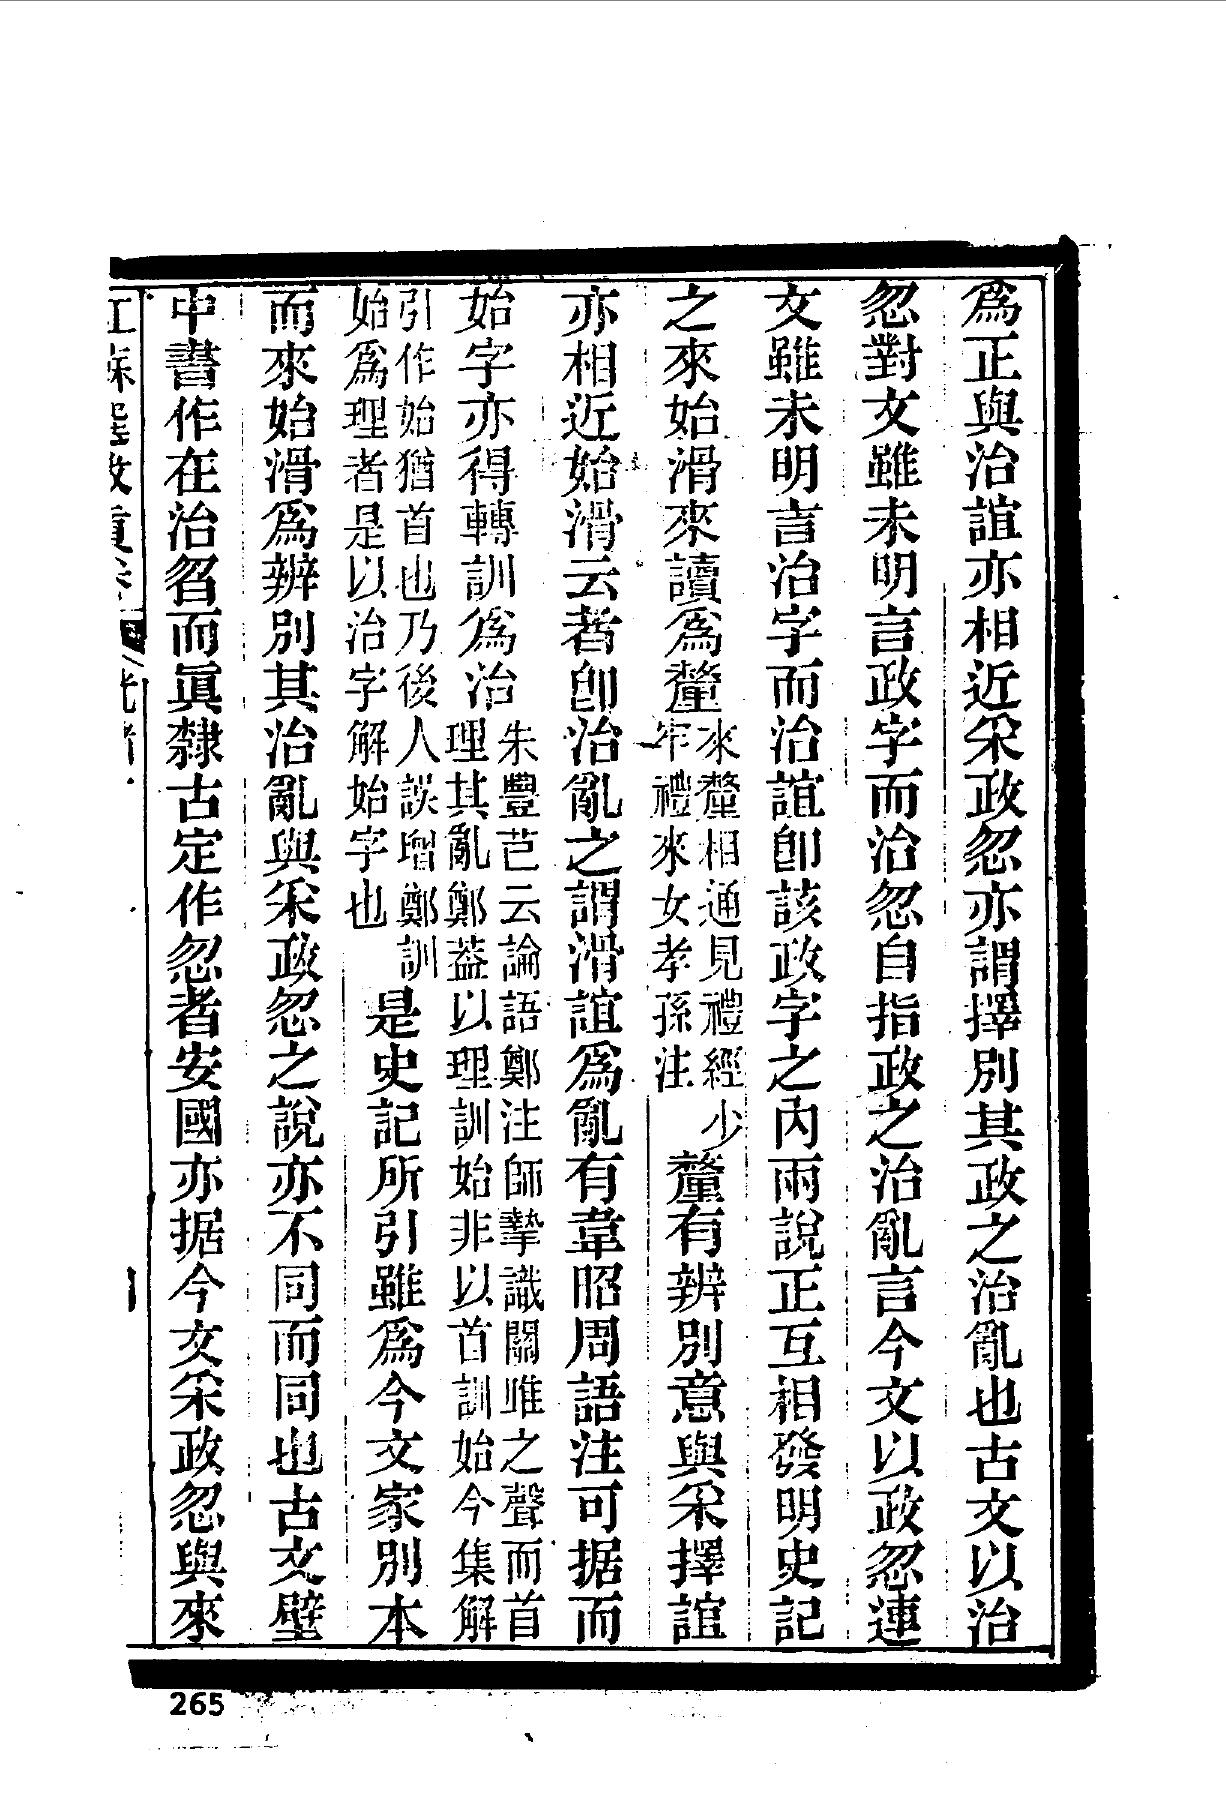 爲正與治誼亦相近采政忽亦謂擇別其政之治亂也古文以治
忽對文雖未明言政字而治忽自指政之治亂言今文以政忽連
文雖未明言治字而治誼卽該政字之內兩說正互相發明史記
之來始滑來讀爲釐
來釐相通見禮經少
牢禮來女孝孫注
釐有辨別意與采擇誼
亦相近始滑云者卽治亂之謂滑誼爲亂有韋昭周語注可据而
始字亦得轉訓爲治
朱豐芑云論語鄭注師摯識關雎之聲而首
理其亂鄭葢以理訓始非以首訓始今集解
引作始猶首也乃後人誤增鄭訓
始爲理者是以治字解始字也
是史記所引雖爲今文家別本
而來始滑爲辨別其治亂與采政忽之說亦不同而同也古文壁
中書作在治曶而眞隸古定作忽者安國亦据今文采政忽與來
265